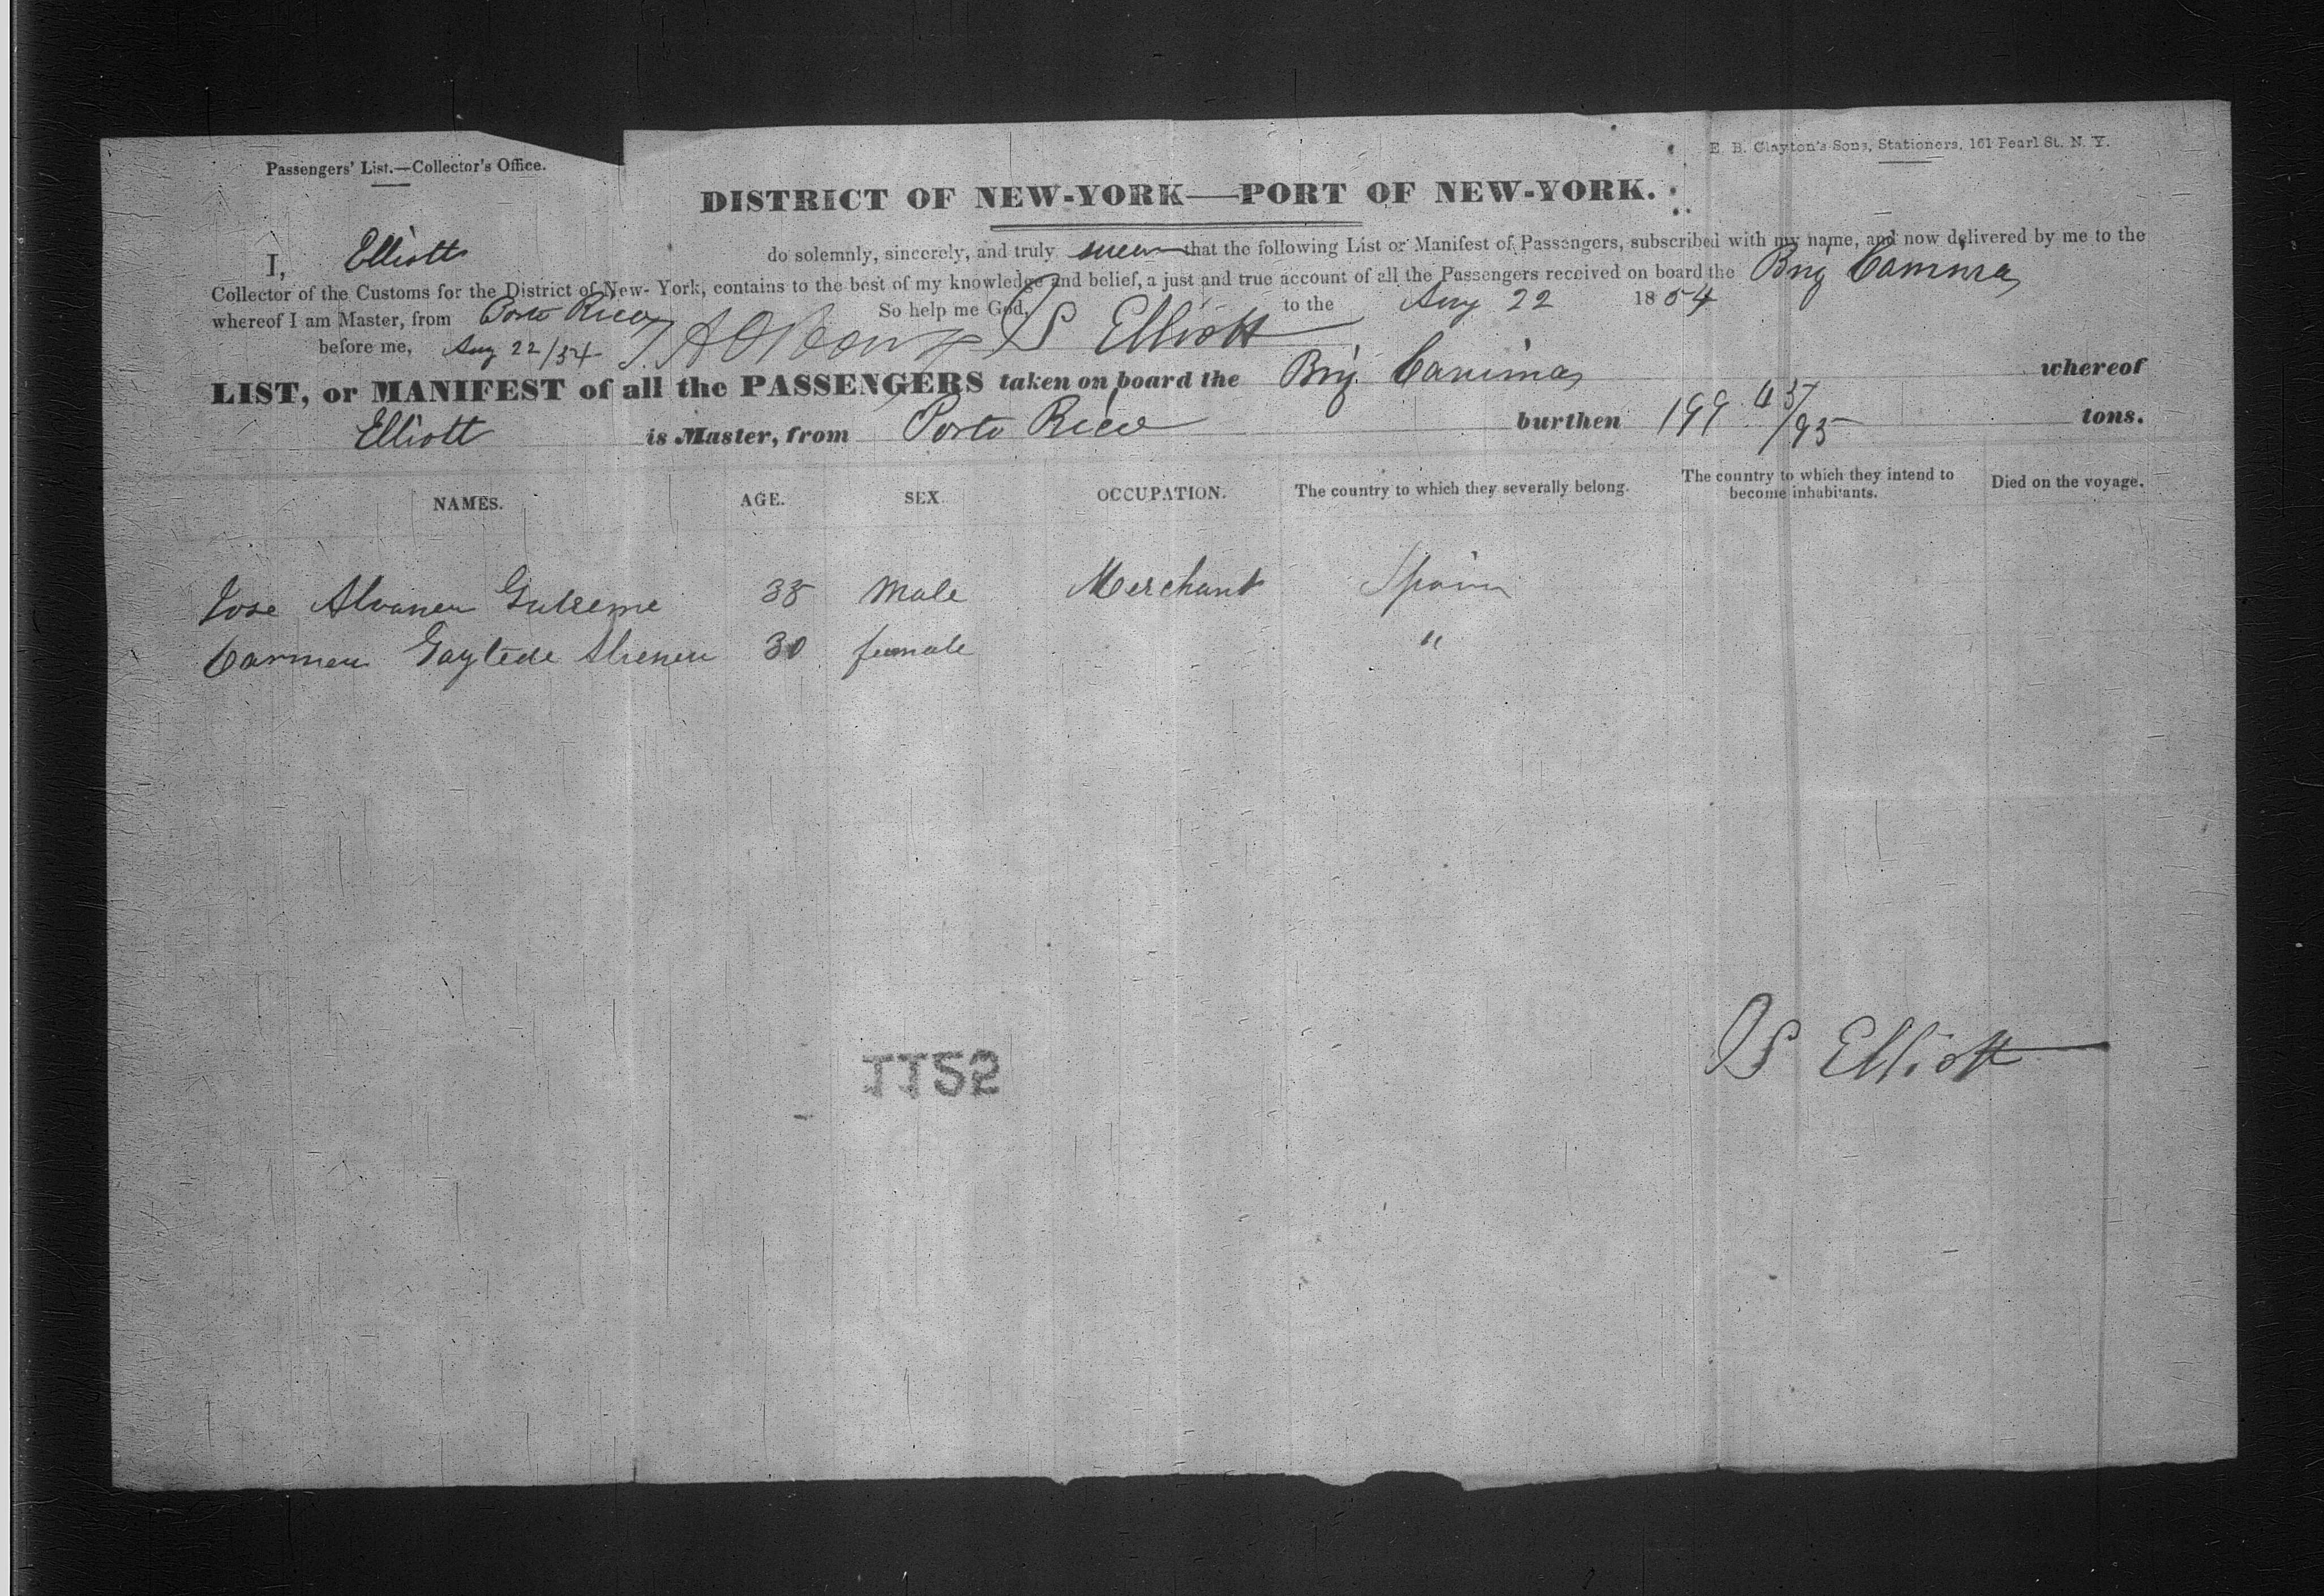 Passengers' List.—Collector's Office.
E. B. Clayton's Sons, Stationers, 161 Pearl St. N. Y.
DISTRICT OF NEW-YORK—PORT OF NEW-YORK.
I, Elliott do solemnly, sincerely, and truly swear that the following List or Manifest of Passengers, subscribed with my name, and now delivered by me to the
Collector of the Customs for the District of New-York, contains to the best of my knowledge and belief, a just and true account of all the Passengers received on board the Brig
whereof I am Master, from Porto Rico So help me God. to the Aug 22 1854
before me, Aug 22/54 S Elliott
LIST, or MANIFEST of all the PASSENGERS taken on board the Brig. Canimas whereof
Elliott is Master, from Porto Rico burthen 199 43/95 tons.
NAMES. AGE. SEX OCCUPATION. The country to which they severally belong. The country to which they intend to become inhabitants. Died on the voyage.
Jose 38 Male Merchant Spain
Carmen 30 female "
S Elliott
1152